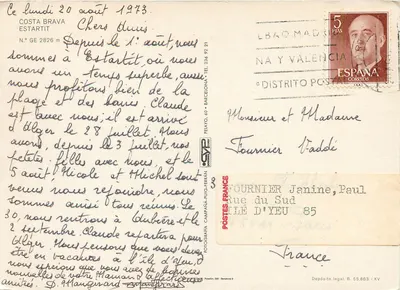 Ce lundi 20 août 1973.
COSTA BRAVA
ESTARTIT
N.º GE 2826
Chers Amis
Depuis le 1º août, nous
sommes à Estartit, où nous
avons un temps superbe, aussi
nous profitons bien de la
plage et des bains, Claude
est avec nous; il est arrivé
d'Alger le 28 juillet. Nous
avons, depuis le 3 juillet, nos
petites filles avec nous, et le
5 août, Nicole et Michel sont
venus nous rejoindre, nous
sommes ainsi tous réunis. Le
30, nous rentrons à Aubière et le
2 septembre, Claude repartira pour
Alger. Nous pensons que vous devez
être en vacances à l'île d'Yeu. Et
nous espérons que vous avez de bonnes
nouvelles de votre Maman
D. Mangavard
BILBAO MADRID
NA Y VALENCIA
DISTRITO POST
5
PTAS
ESPAÑA
CORREOS
Monsieur et Madame
Fournier Vaddé
POSTES. FRANCE
FOURNIER Janine, Paul
Rue du Sud
ILE D'YEU 85
France